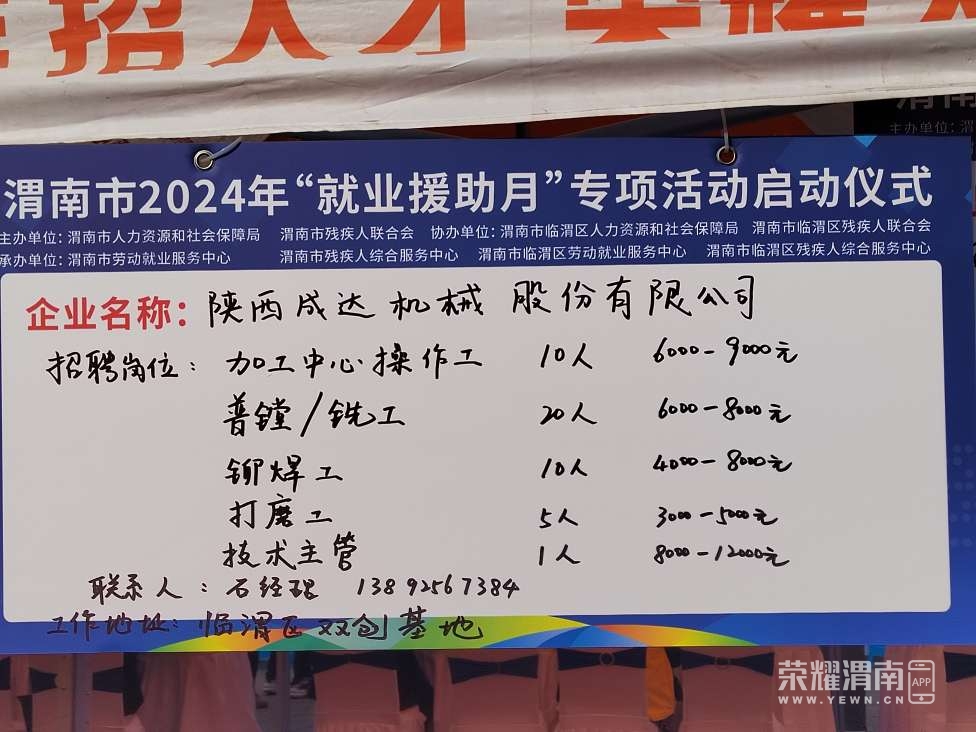 招人才 荣耀
渭南
主办单位：渭
渭南市2024年“就业援助月”专项活动启动仪式
主办单位：渭南市人力资源和社会保障局 渭南市残疾人联合会 协办单位：渭南市临渭区人力资源和社会保障局 渭南市临渭区残疾人联合会
承办单位：渭南市劳动就业服务中心 渭南市残疾人综合服务中心 渭南市临渭区劳动就业服务中心 渭南市临渭区残疾人综合服务中心
企业名称：陕西成达机械股份有限公司
招聘岗位：加工中心操作工 10人 6000-9000元
普镗/铣工 20人 6000-8000元
铆焊工 10人 4000-8000元
打磨工 5人 3000-5000元
技术主管 1人 8000-12000元
联系人：石经理 13892567384
工作地址：临渭区双创基地
荣耀渭南 APP
WWW.YEWN.CN